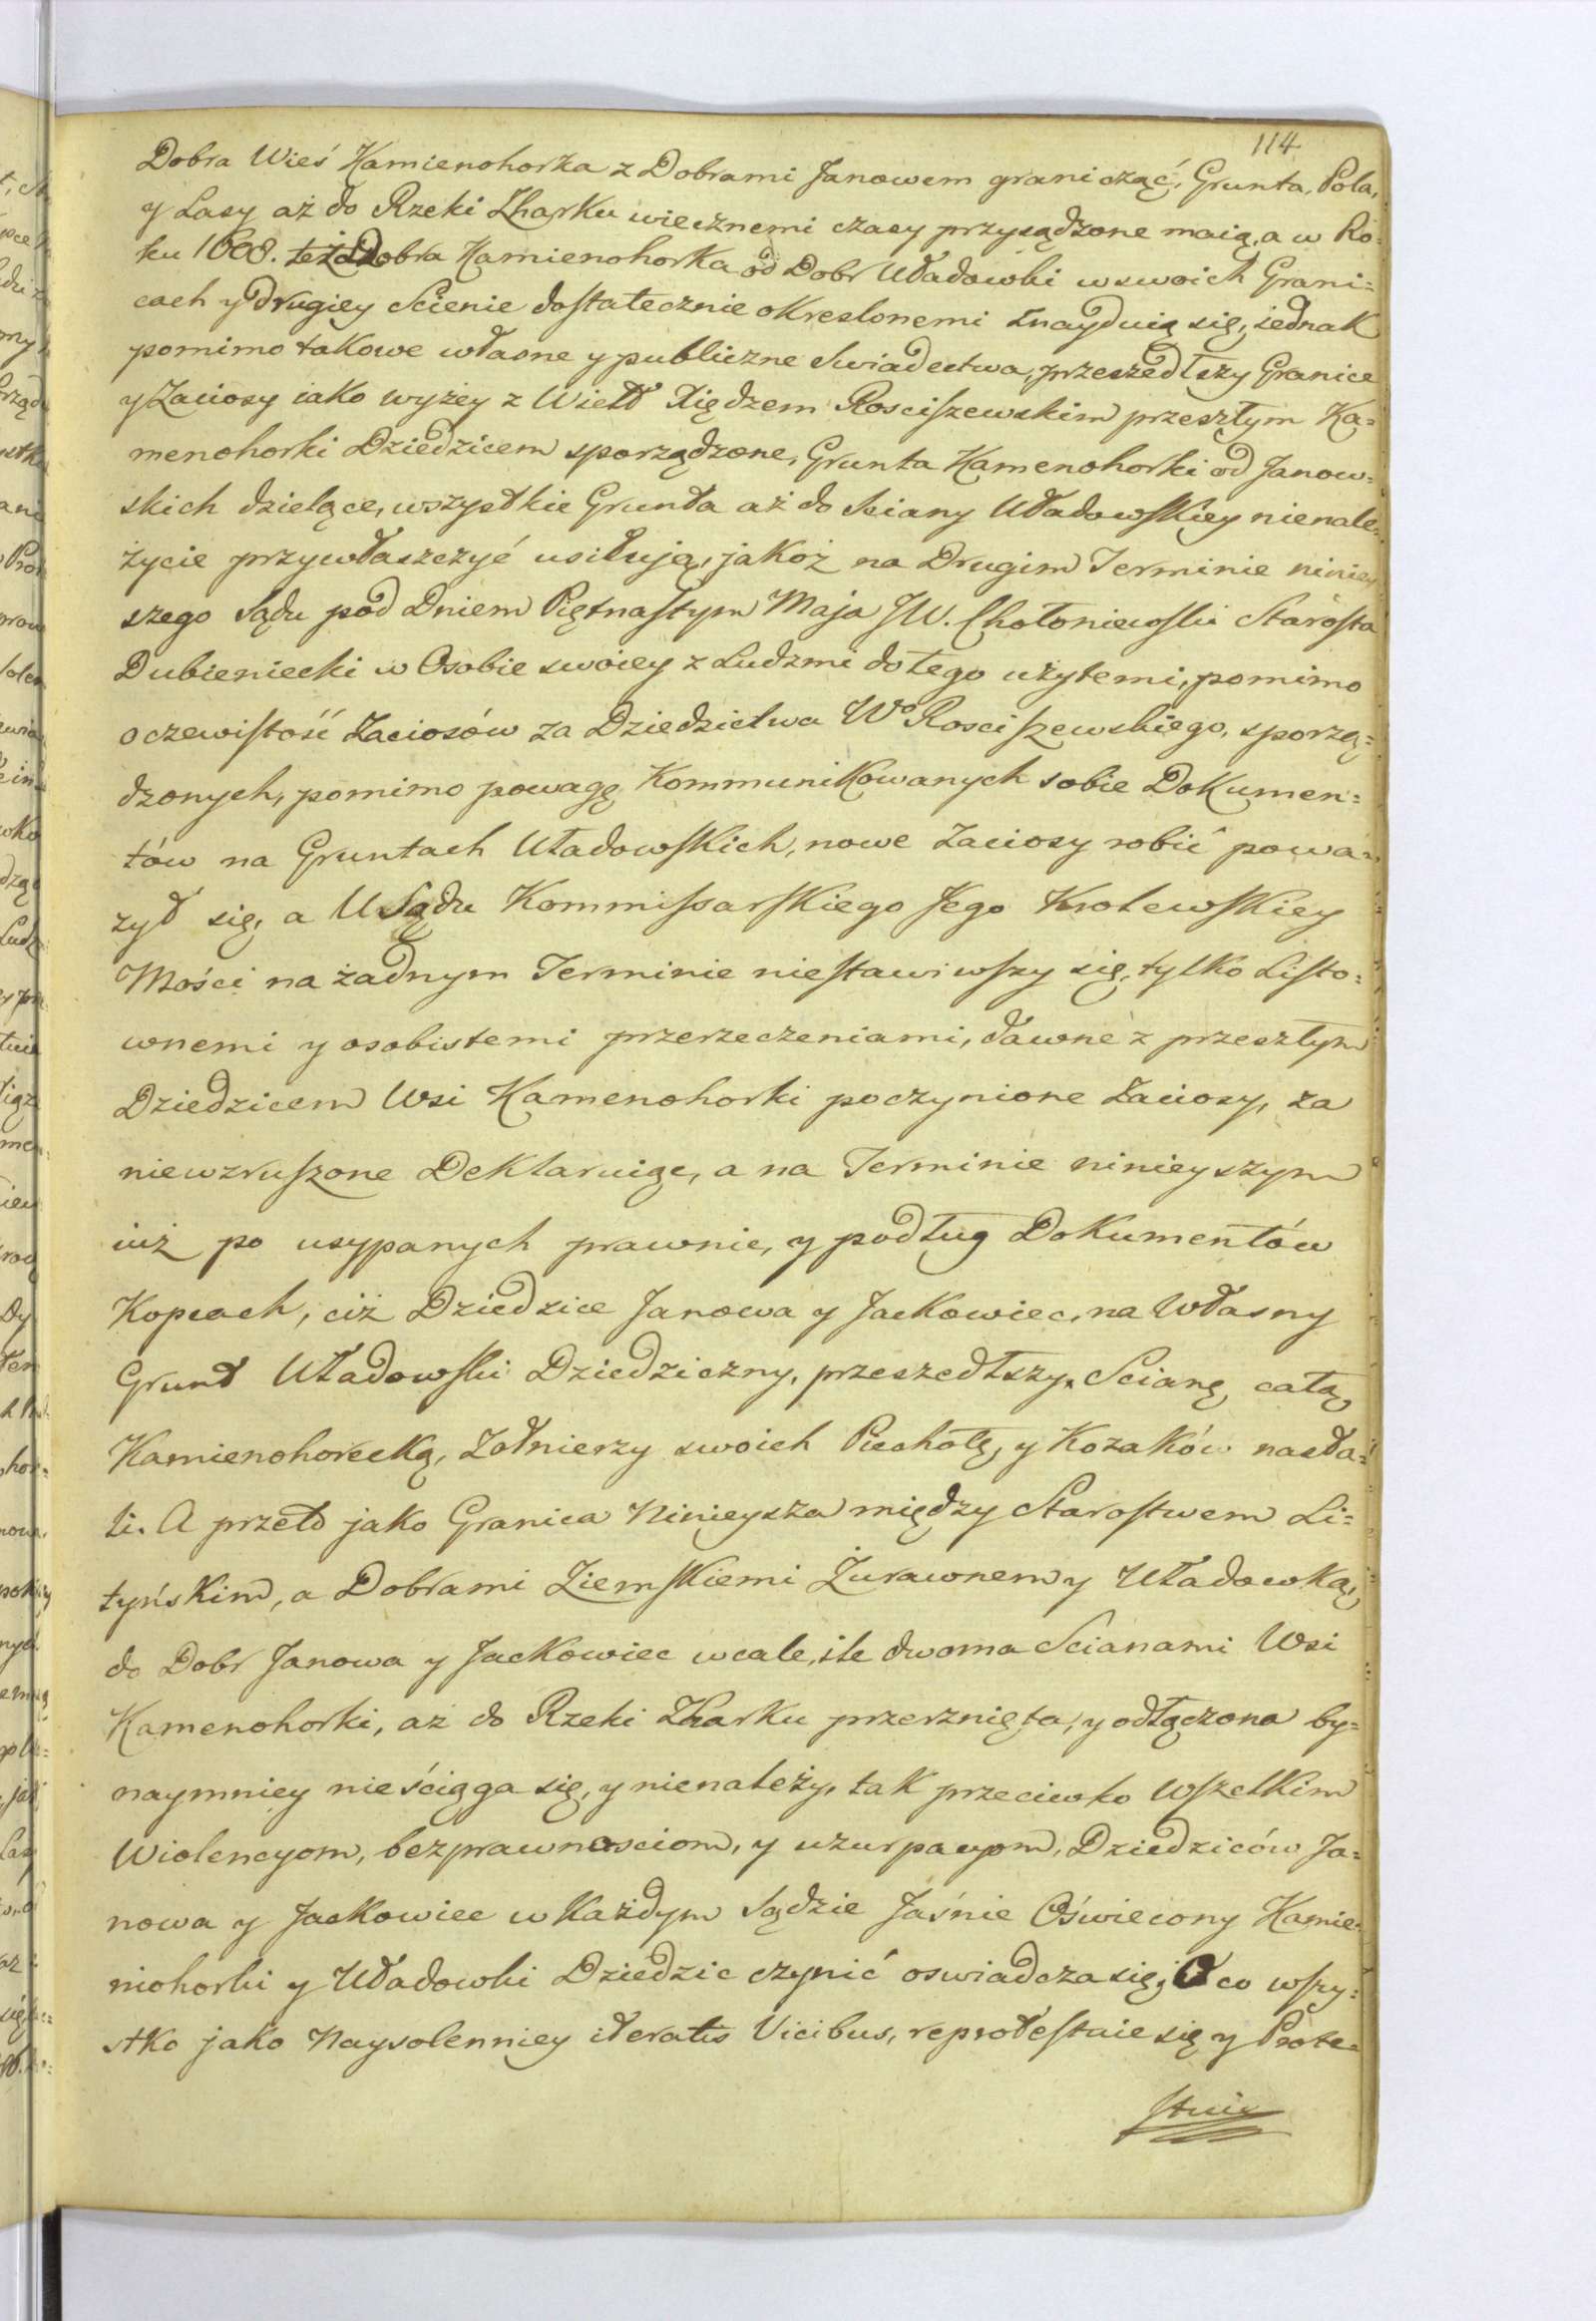 114
Dobra Wieś Kamienohorka z Dobrami Janowem graniczącé, Grunta, Pola,
y Lasy aż do Rzeki Zharku wiecznemi czasy przysądzone maią, a w Ro=
ku 1608. też Dobra Kamienohorka od Dobr Uładowki w swoich Grani=
cach y drugiey Scienie dostatecznie okreslonemi znayduią się, iednak
pomimo takowe własne y publiczne Swiadectwa, przeszedłszy Granice
y Zaciosy iako wyżey z Wiel Xiędzem Rosciszewskim przeszłym Ka=
menohorki Dziedzicem sporządzone, Grunta Kamenohorki od Janow=
skich dzielące, wszystkie Grunta aż do Sciany Uładowskiey nienale=
życie przywłaszczyć usiłują, jakoż na Drugim Terminie niniey
szego Sądu pod Dniem Piętnastym Maja JW. Chołoniewski Starosta
Dubieniecki w Osobie swoiey z Ludzmi do tego użytemi, pomimo
oczewistość Zaciosów za Dziedzictwa Wo Rosciszewskiego, sporzą=
dzonych, pomimo powagę Kommunikowanych sobie Dokumen=
tów na Gruntach Uładowskich, nowe Zaciosy robić powa=
żył się, a U Sądu Kommissarskiego Jego Krolewskiey
Mości na żadnym Terminie niestawiwszy się, tylko Listo=
wnemi y osobistemi przerzeczeniami, dawne z przeszłym
Dziedzicem Wsi Kamenohorki poczynione Zaciosy, za
niewzruszone Deklaruiąc, a na Terminie ninieyszym
iuż po usypanych prawnie, y podług Dokumentów
Kopcach, ciż Dziedzice Janowa y Jackowiec, na Własny
Grunt Uładowski Dziedziczny, przeszedłszy Scianę całą
Kamienohorecką, Żołnierzy swoich Piechotę, y Kozaków nasła=
li. A przeto jako Granica Ninieysza między Starostwem Li=
tyńskim, a Dobrami Ziemskiemi Żurawnem y Uładowką,
do Dobr Janowa y Jackowiec wcale, ile dwoma Scianami Wsi
Kamenohorki, aż do Rzeki Zharku przerznięta, y odłączona by=
naymniey nieściąga się, y nienależy, tak przeciwko Wszelkim
Wiolencyom, bezprawnosciom, y uzurpacyom, Dziedziców Ja=
nowa y Jackowiec w Każdym Sądzie Jaśnie Oświecony Kamie=
niohorki y Uładowki Dziedzic czynić oswiadcza się, O co wszy=
stko jako Naysolenniey iteratis Vicibus, reprotestuie się y Prote=
stuie